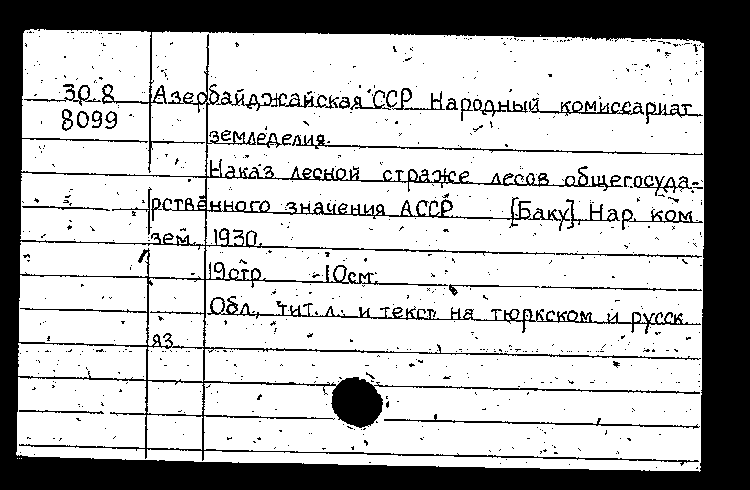 30.8 Азербайджайская ССР Народный комиссариат
8099 земледелия.
Наказ лесной страже лесов общегосуда-
рственного значения АССР [Баку], Нар. ком
зем., 1930.
19стр. 10см.
Обл., тит. л. и текст на тюркском и русск.
яз.